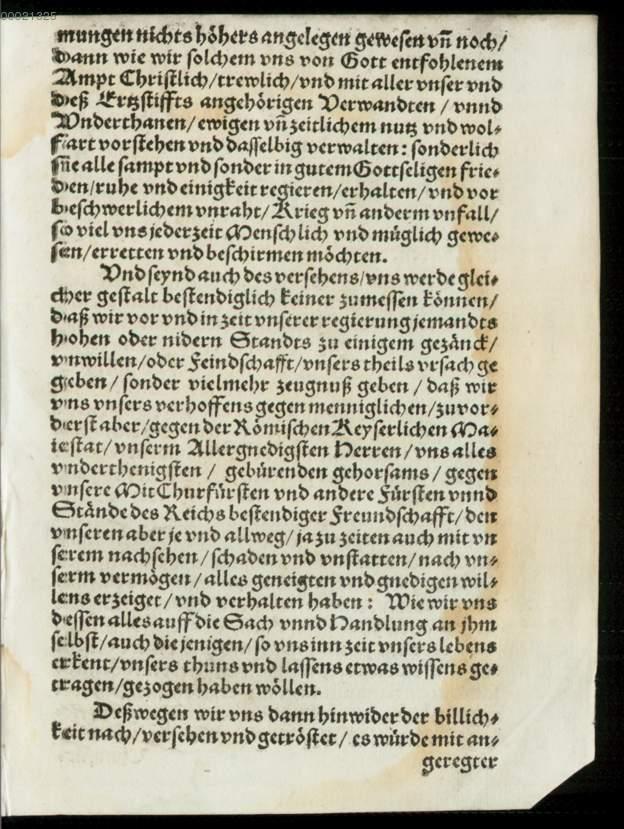 00021325
mungen nichts höhers angelegen gewesen vñ noch/
Dann wie wir solchem vns von Gott entfohlenem
Ampt Christlich/trewlich/vnd mit aller vnser vnd
deß Ertzstiffts angehörigen Verwandten / vnnd
Vnderthanen/ewigen vñ zeitlichem nutz vnd wol⸗
fart vorstehen vnd dasselbig verwalten: sonderlich
sie alle sampt vnd sonder in gutem Gottseligen frie⸗
den/ruhe vnd einigkeit regieren/erhalten/vnd vor
beschwerlichem vnraht/Krieg vñ anderm vnfall/
so viel vns jederzeit Menschlich vnd müglich gewe⸗
sen/erretten vnd beschirmen möchten.
Vnd seynd auch des versehens/vns werde glei⸗
cher gestalt bestendiglich keiner zumessen können/
daß wir vor vnd in zeit vnserer regierung jemandts
hohen oder nidern Standts zu einigem gezänck/
vnwillen/oder Feindschafft/vnsers theils vrsach ge
geben / sonder vielmehr zeugnuß geben / daß wir
vns vnsers verhoffens gegen menniglichen/zuvor⸗
derst aber/gegen der Römischen Keyserlichen Ma⸗
iestat/vnserm Allergnedigsten Herren/vns alles
vnderthenigsten / gebürenden gehorsams / gegen
vnsere MitChurfürsten vnd andere Fürsten vnnd
Stände des Reichs bestendiger Freundschafft/den
vnseren aber je vnd allweg/ja zu zeiten auch mit vn
serem nachsehen/schaden vnd vnstatten/nach vn⸗
serm vermögen/alles geneigten vnd gnedigen wil⸗
lens erzeiget/vnd verhalten haben: Wie wir vns
dessen alles auff die Sach vnnd Handlung an jhm
selbst/auch die jenigen/so vns inn zeit vnsers lebens
erkent/vnsers thuns vnd lassens etwas wissens ge⸗
tragen/gezogen haben wöllen.
Deßwegen wir vns dann hinwider der billich⸗
keit nach/versehen vnd getröstet/es würde mit an⸗
geregter